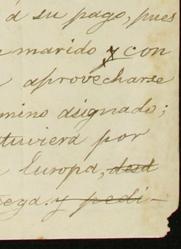 á su pago, pues
marido y con
aprovecharse
mino asignado;
tuviera por
Europa, desd
ega y pedi-